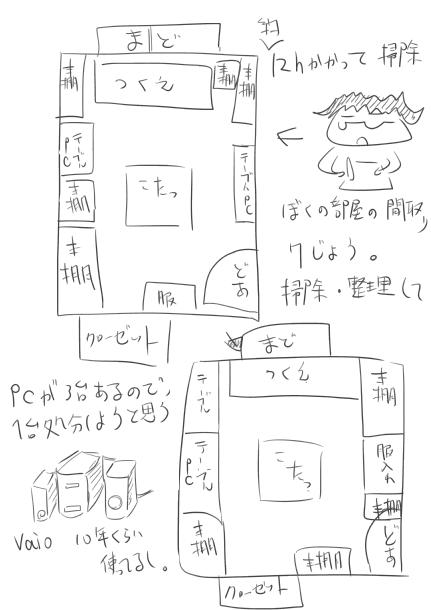 まど
約
12hかかって 掃除
本棚
つくえ
本棚
本棚
テーブル
PC
本棚
こたつ
テーブルPC
ぼくの部屋の間取り
7じょう。
本棚
服
どあ
掃除・整理して
クローゼット
まど
つくえ
PCが3台あるので、
1台処分しようと思う
テーブル
本棚
テーブル
PC
こたつ
服入れ
本棚
どあ
本棚
本棚
Vaio 10年くらい
使ってるし。
クローゼット